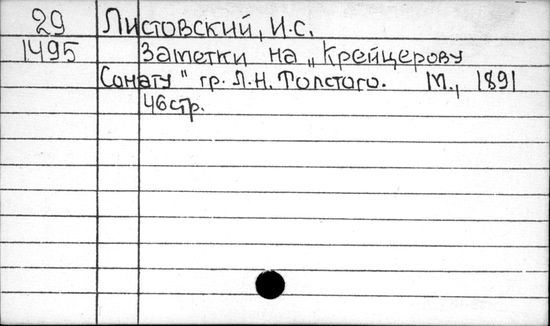 29 Листовский, И.С.
1495 Заметки на „Крейцерову
Сонату" гр. Л.Н. Толстого. М., 1891
46стр.